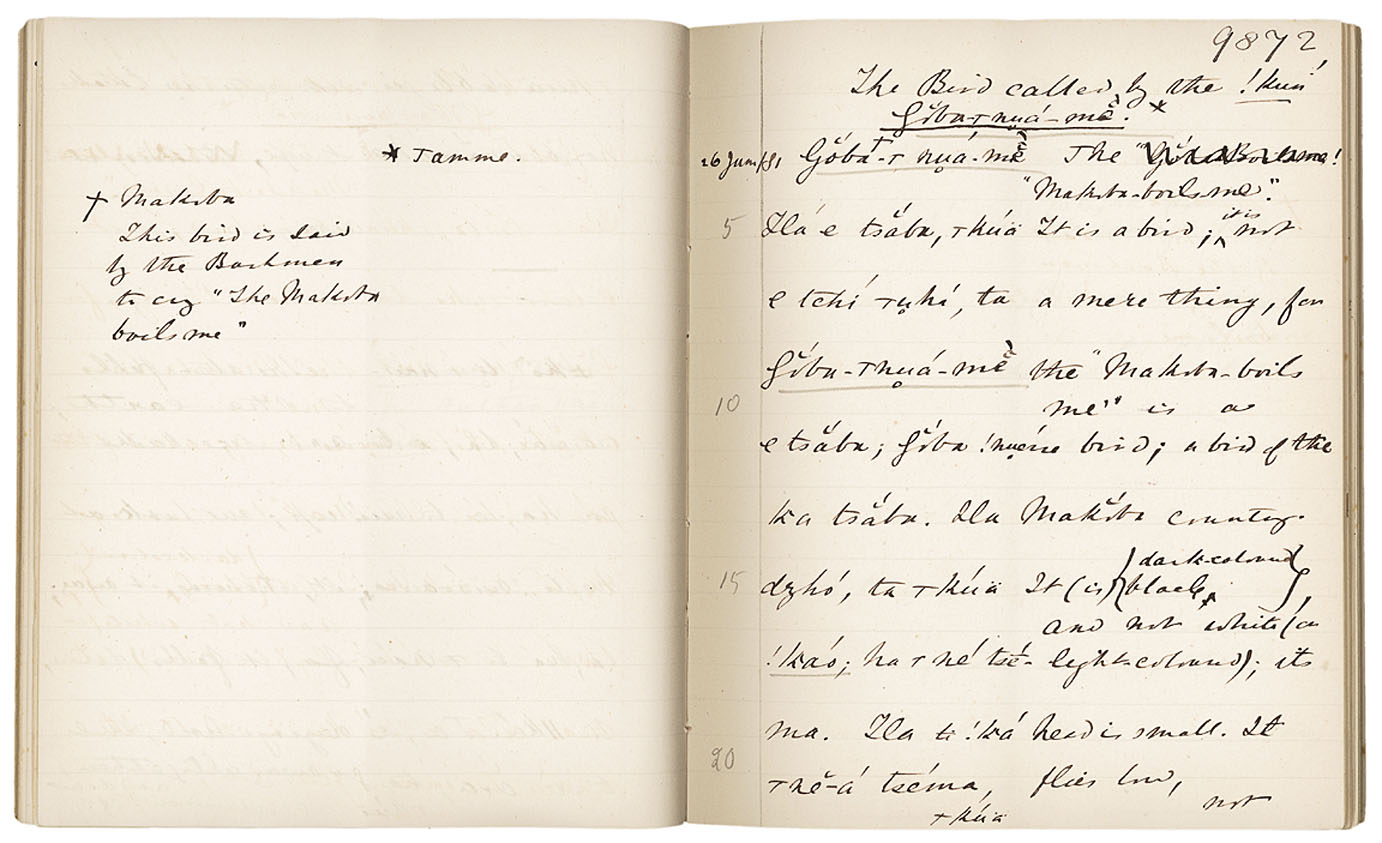 * Tamme.
† Makoba
This bird is said
by the Bushmen
to cry "The Makoba
boils me"
9872
The Bird called by the !kuń
Gŏba-т nuá-mĕ. *
26 Jun/81 Gŏbá†-т nuá-mĕ The
"Makoba-boils-me".
5 Ⅱá e tsăba, т kúä It is a bird; it is not
e tchi т ụhí, ta a mere thing, for
Gŏba-т nuá-mĕ the "Makoba-boils
10 me" is a
e tsăba; Gŏba bird; a bird of the
ka tsăba. Ⅱa Makŏba country.
15 dzhó, ta т kúä It (is) {black, dark-coloured},
and not white (or
!káo; ha т né tsĕ- light-coloured); its
ma. Ⅱa ti !ká head is small. It
20 т nĕ-á tséma, flies low,
т kúä not